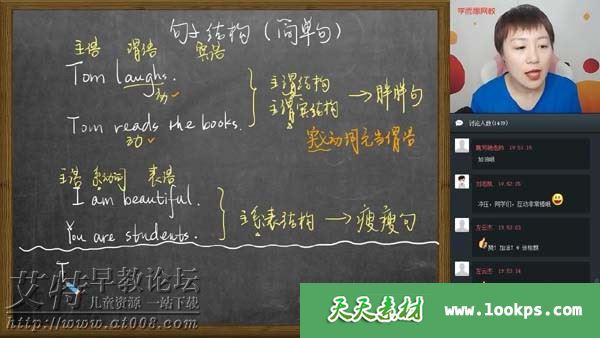 句子结构 (简单句)
主语 谓语 宾语
Tom laughs.
动
主谓结构
主谓宾结构 → 胖胖句
Tom reads the books.
动
实动词充当谓语
主语 系动词 表语
I am beautiful.
You are students.
主系表结构 → 瘦瘦句
T
艾特早教论坛
儿童资源 一站下载
http://www.at008.com
学而思网校
讨论人数(1419)
19:52:05
加油哦
冲压，同学们，互动非常棒哦
左云杰
左云杰 19:53:14
天天素材 www.lookps.com